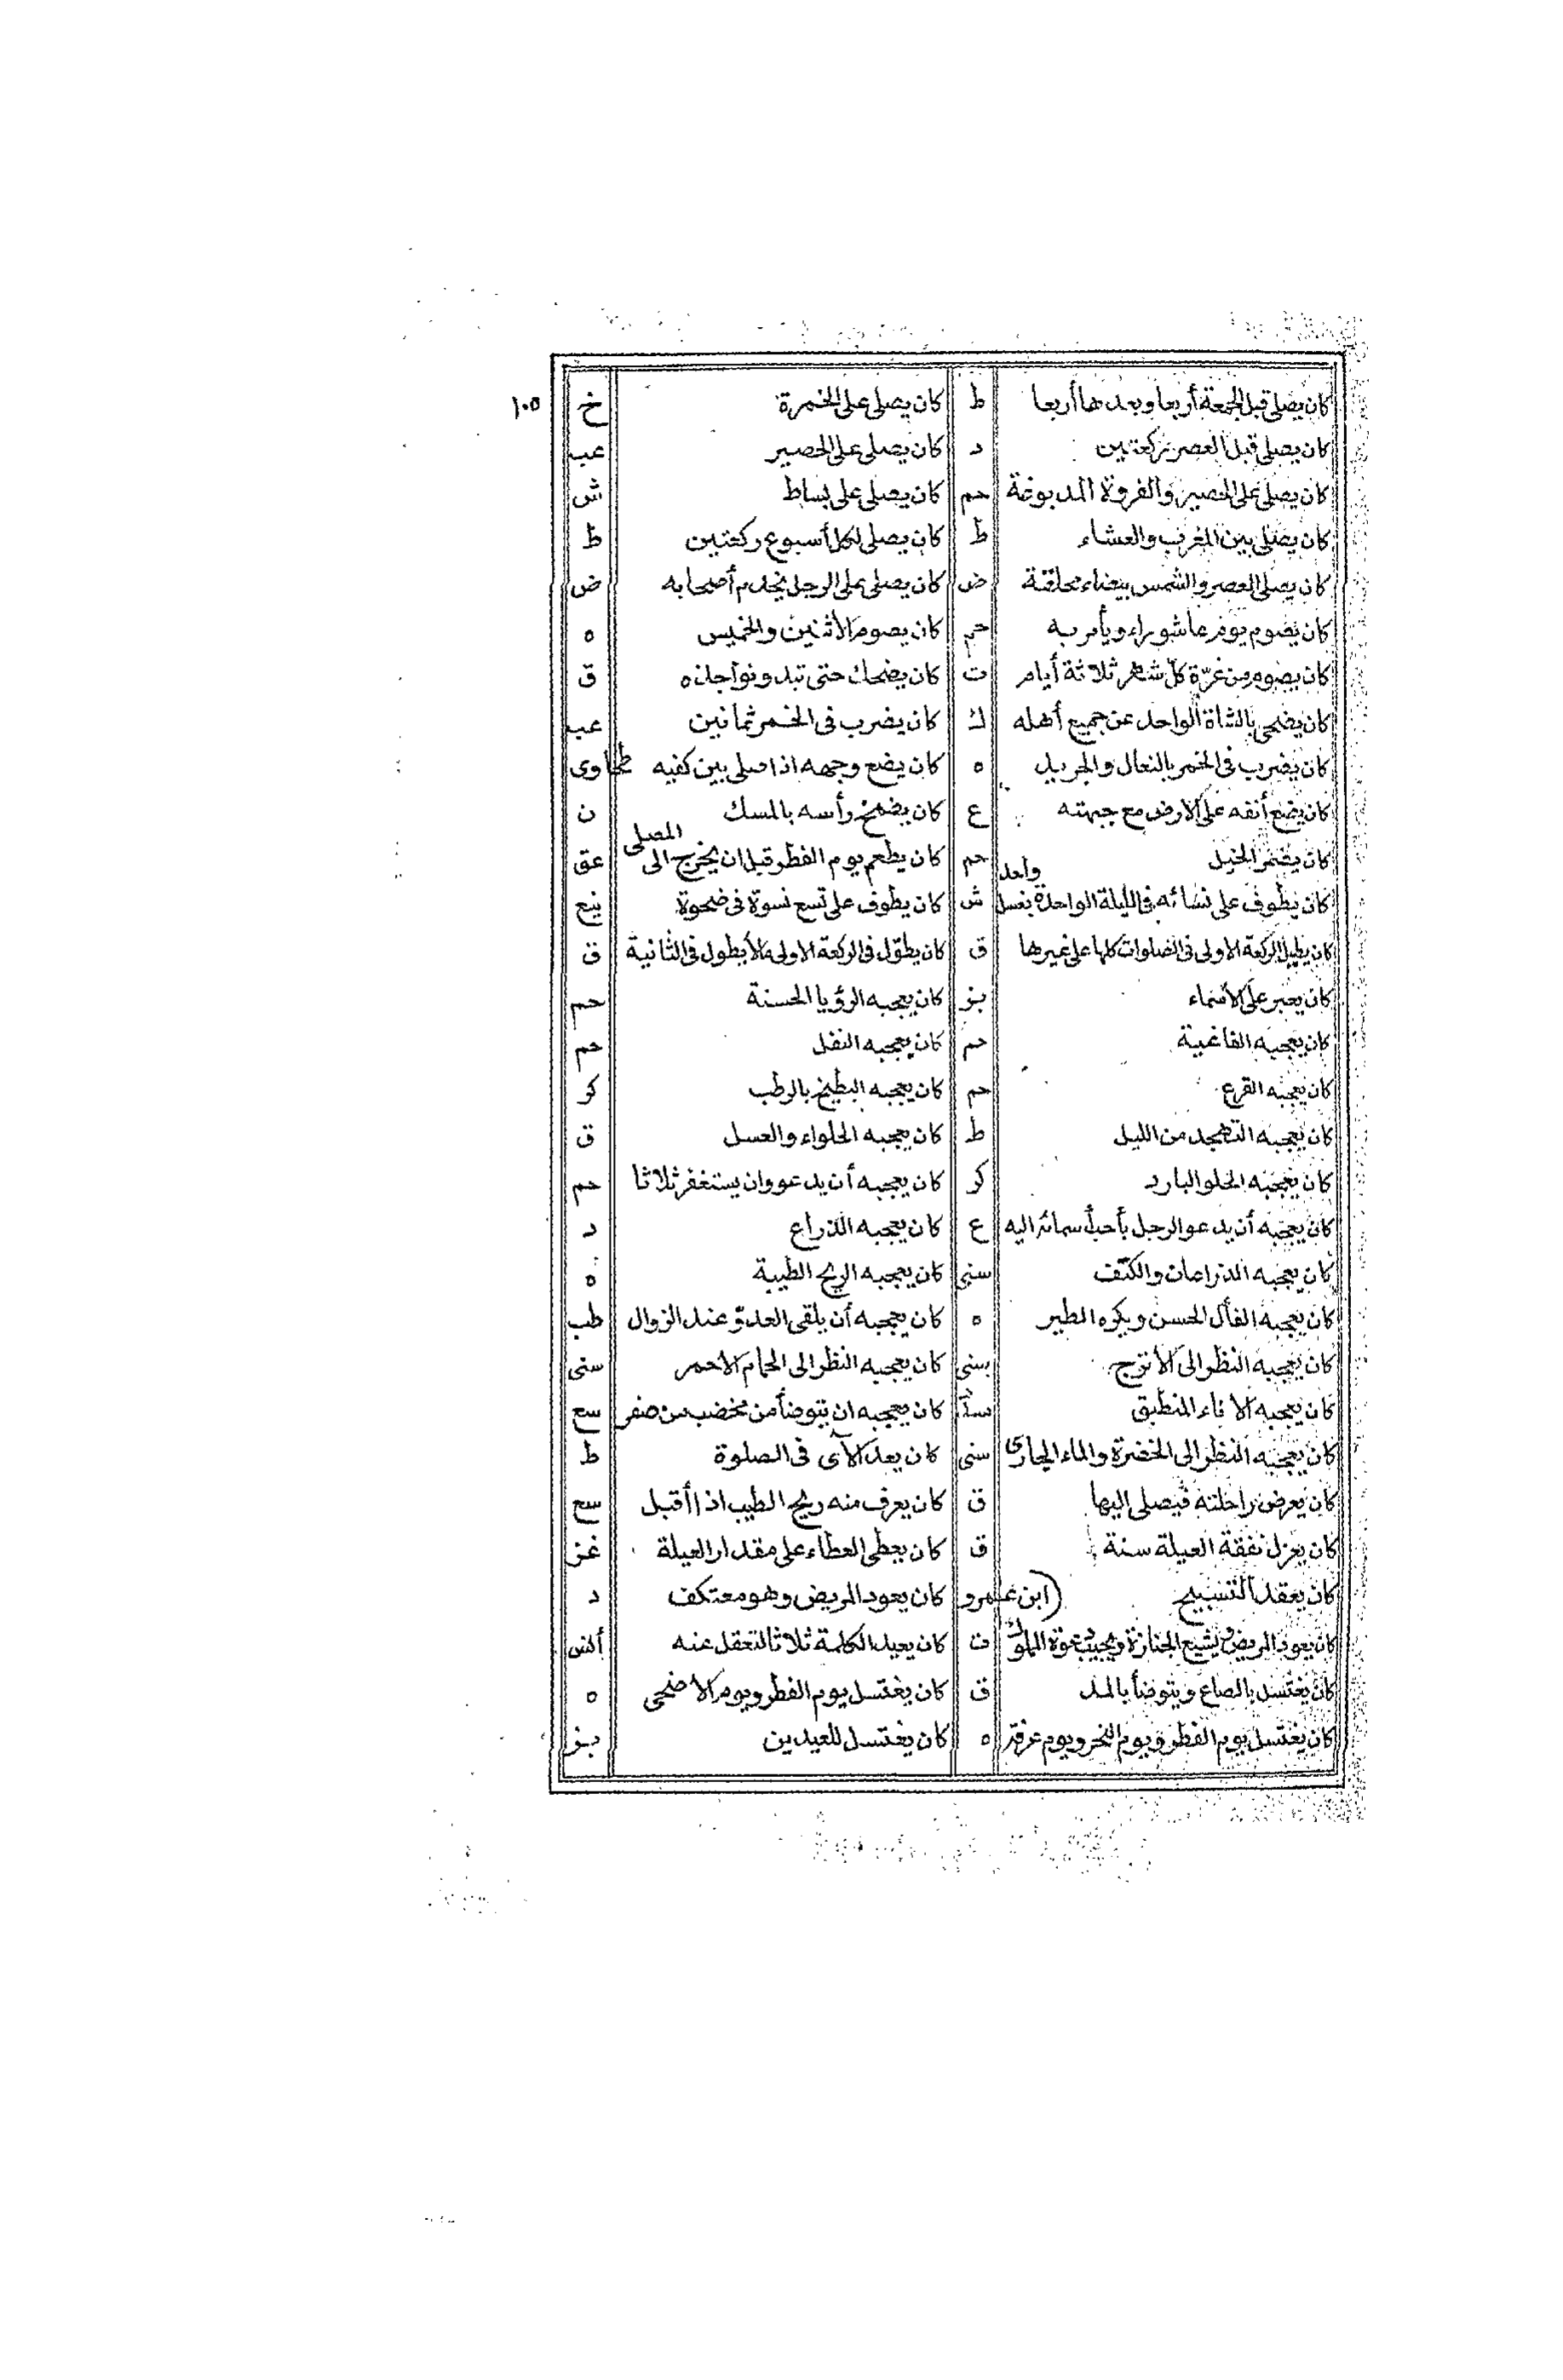 ١٠٥
كان يصلى قبل الجمعة أربعا وبعدها أربعا ط كان يصلى على الخمرة خ
كان يصلى قبل العصر ركعتين د كان يصلى على الحصير عب
كان يصلى على الحصير والفروة المدبوغة حم كان يصلى على بساط ش
كان يصلى بين المغرب والعشاء ط كان يصلى لكل أسبوع ركعتين ط
كان يصلى العصر والشمس بيضاء محلقة ض كان يصلى على الرجل يخدم أصحابه ض
كان يصوم يوم عاشوراء ويأمر به حم كان يصوم الأثنين والخميس ه
كان يصوم من غرّة كلّ شهر ثلاثة أيام ت كان يضحك حتى تبدو نواجذه ق
كان يضحى بالشاة الواحد عن جميع أهله ك كان يضرب فى الخمر ثمانين عب
كان يضرب فى الخمر بالنعال والجريد ه كان يضع وجهه اذا صلى بين كفيه طحاوى
كان يضع أنفه على الارض مع جبهته ع كان يضمخ رأسه بالمسك ن
كان يضمر الخيل حم كان يطعم يوم الفطر قبل ان يخرج الى المصلى عق
كان يطوف على نسائه فى الليلة الواحدة بغسل واحد ش كان يطوف على تسع نسوة فى ضحوة
كان يطيل الركعة الاولى فى الصلوات كلها على غيرها ق كان يطوّل فى الركعة الاولى مالا يطول فى الثانية ق
كان يعبر على الأسماء بز كان يعجبه الرؤيا الحسنة حم
كان يعجبه الفاغية حم كان يعجبه الثفل حم
كان يعجبه القرع حم كان يعجبه البطيخ بالرطب كر
كان يعجبه التهجد من الليل ط كان يعجبه الحلواء والعسل ق
كان يعجبه الحلو البارد كر كان يعجبه أن يدعو وان يستغفر ثلاثا حم
كان يعجبه أن يدعو الرجل بأحب أسمائه اليه ع كان يعجبه الذراع د
كان يعجبه الذراعان والكتف سنى كان يعجبه الريح الطيبة ه
كان يعجبه الفأل الحسن ويكره الطير ه كان يعجبه أن يلقى العدوّ عند الزوال طب
كان يعجبه النظر الى الأترج سنى كان يعجبه النظر الى الحمام الاحمر سنى
كان يعجبه الاناء المنطبق كان يعجبه ان يتوضأ من مخضب من صفر سع
كان يعجبه النظر الى الخضرة والماء الجارى سنى كان يعد الآى فى الصلوة ط
كان يعرض راحلته فيصلى اليها ق كان يعرف منه ريح الطيب اذا أقبل سع
كان يعزل نفقة العيلة سنة ق كان يعطى العطاء على مقدار العيلة
كان يعقد التسبيح (ابن عمرو كان يعود المريض وهو معتكف د
كان يعود المريض ويشيع الجنازة ويجيب دعوة المملوك ت كان يعيد الكلمة ثلاثا لتعقل عنه أنس
كان يغتسل بالصاع ويتوضأ بالمد ق كان يغتسل يوم الفطر ويوم الاضحى ه
كان يغتسل يوم الفطر ويوم النحر ويوم عرفة ه كان يغتسل للعيدين بز